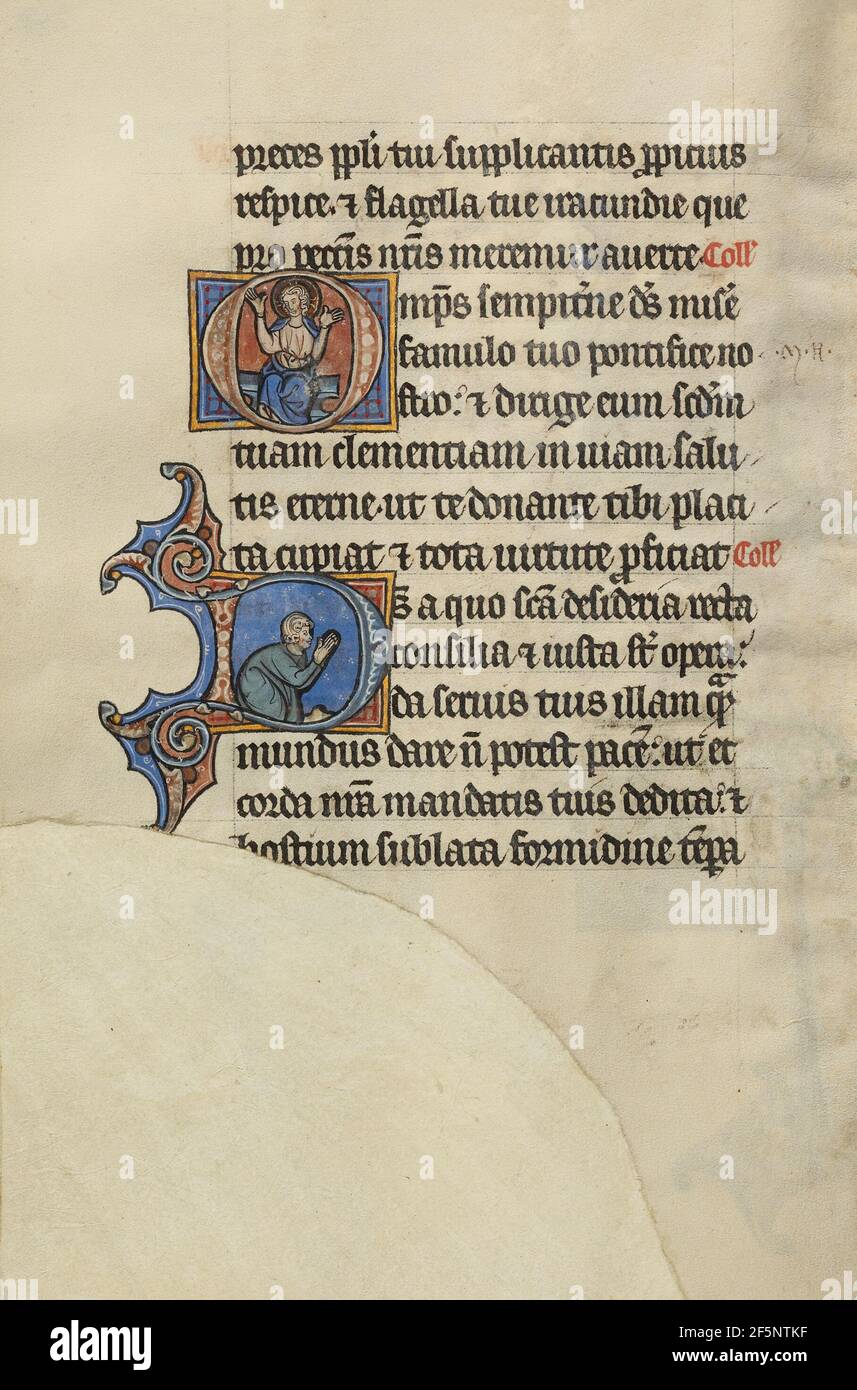 preces ppl̅i tui supplicantis ꝓpicius
respice. ⁊ flagella tue iracundie que
pro pecc̅is nr̅is meremur auerte. Coll̅
Omp̅s sempit̅ne ds̅ mise̅
famulo tuo pontifice no
stro: ⁊ dirige eum sed̅m
tuam clementiam in uiam salu
tis eterne. ut te donante tibi placi
ta cupiat ⁊ tota uirtute ꝓficiat Coll̅
Ds̅ a quo sc̅a desideria recta
consilia ⁊ iusta st̅ opera:
da seruis tuis illam qᵃm
mundus dare n̅ potest pace̅: ut et
corda nr̅a mandatis tuis dedita: ⁊
hostium sublata formidine te̅pa
alamy
Image ID: 2F5NTKF
www.alamy.com